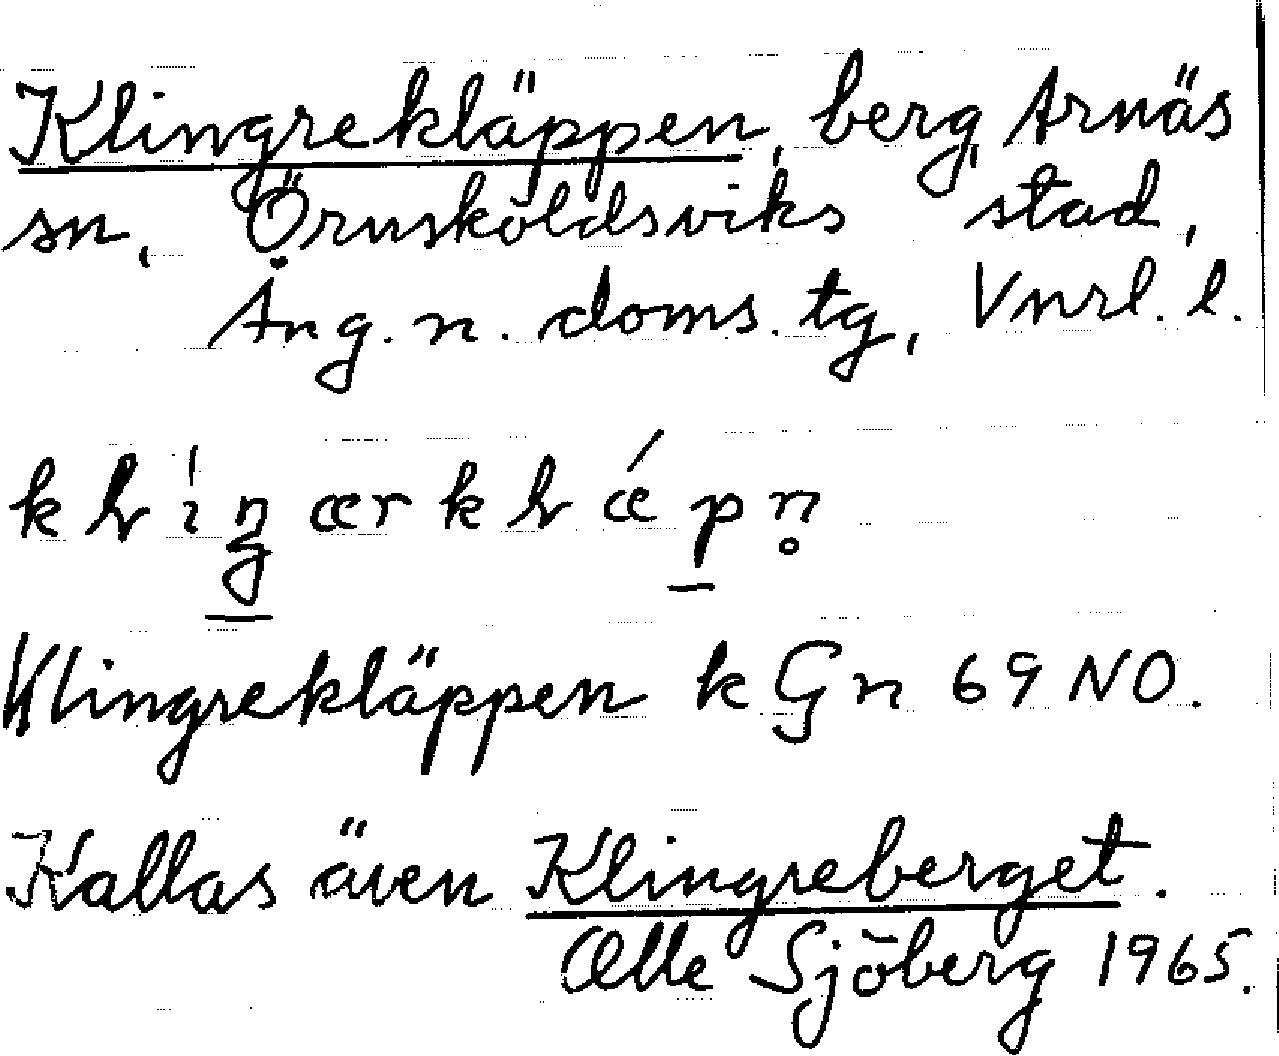 Klingrekläppen, berg, Arnäs
sn, Örnsköldsviks stad,
Ång. n. doms. tg, Vnrl. l.
Klingrekläppen kGn 69 NO.
Kallas även Klingreberget.
Olle Sjöberg 1965.